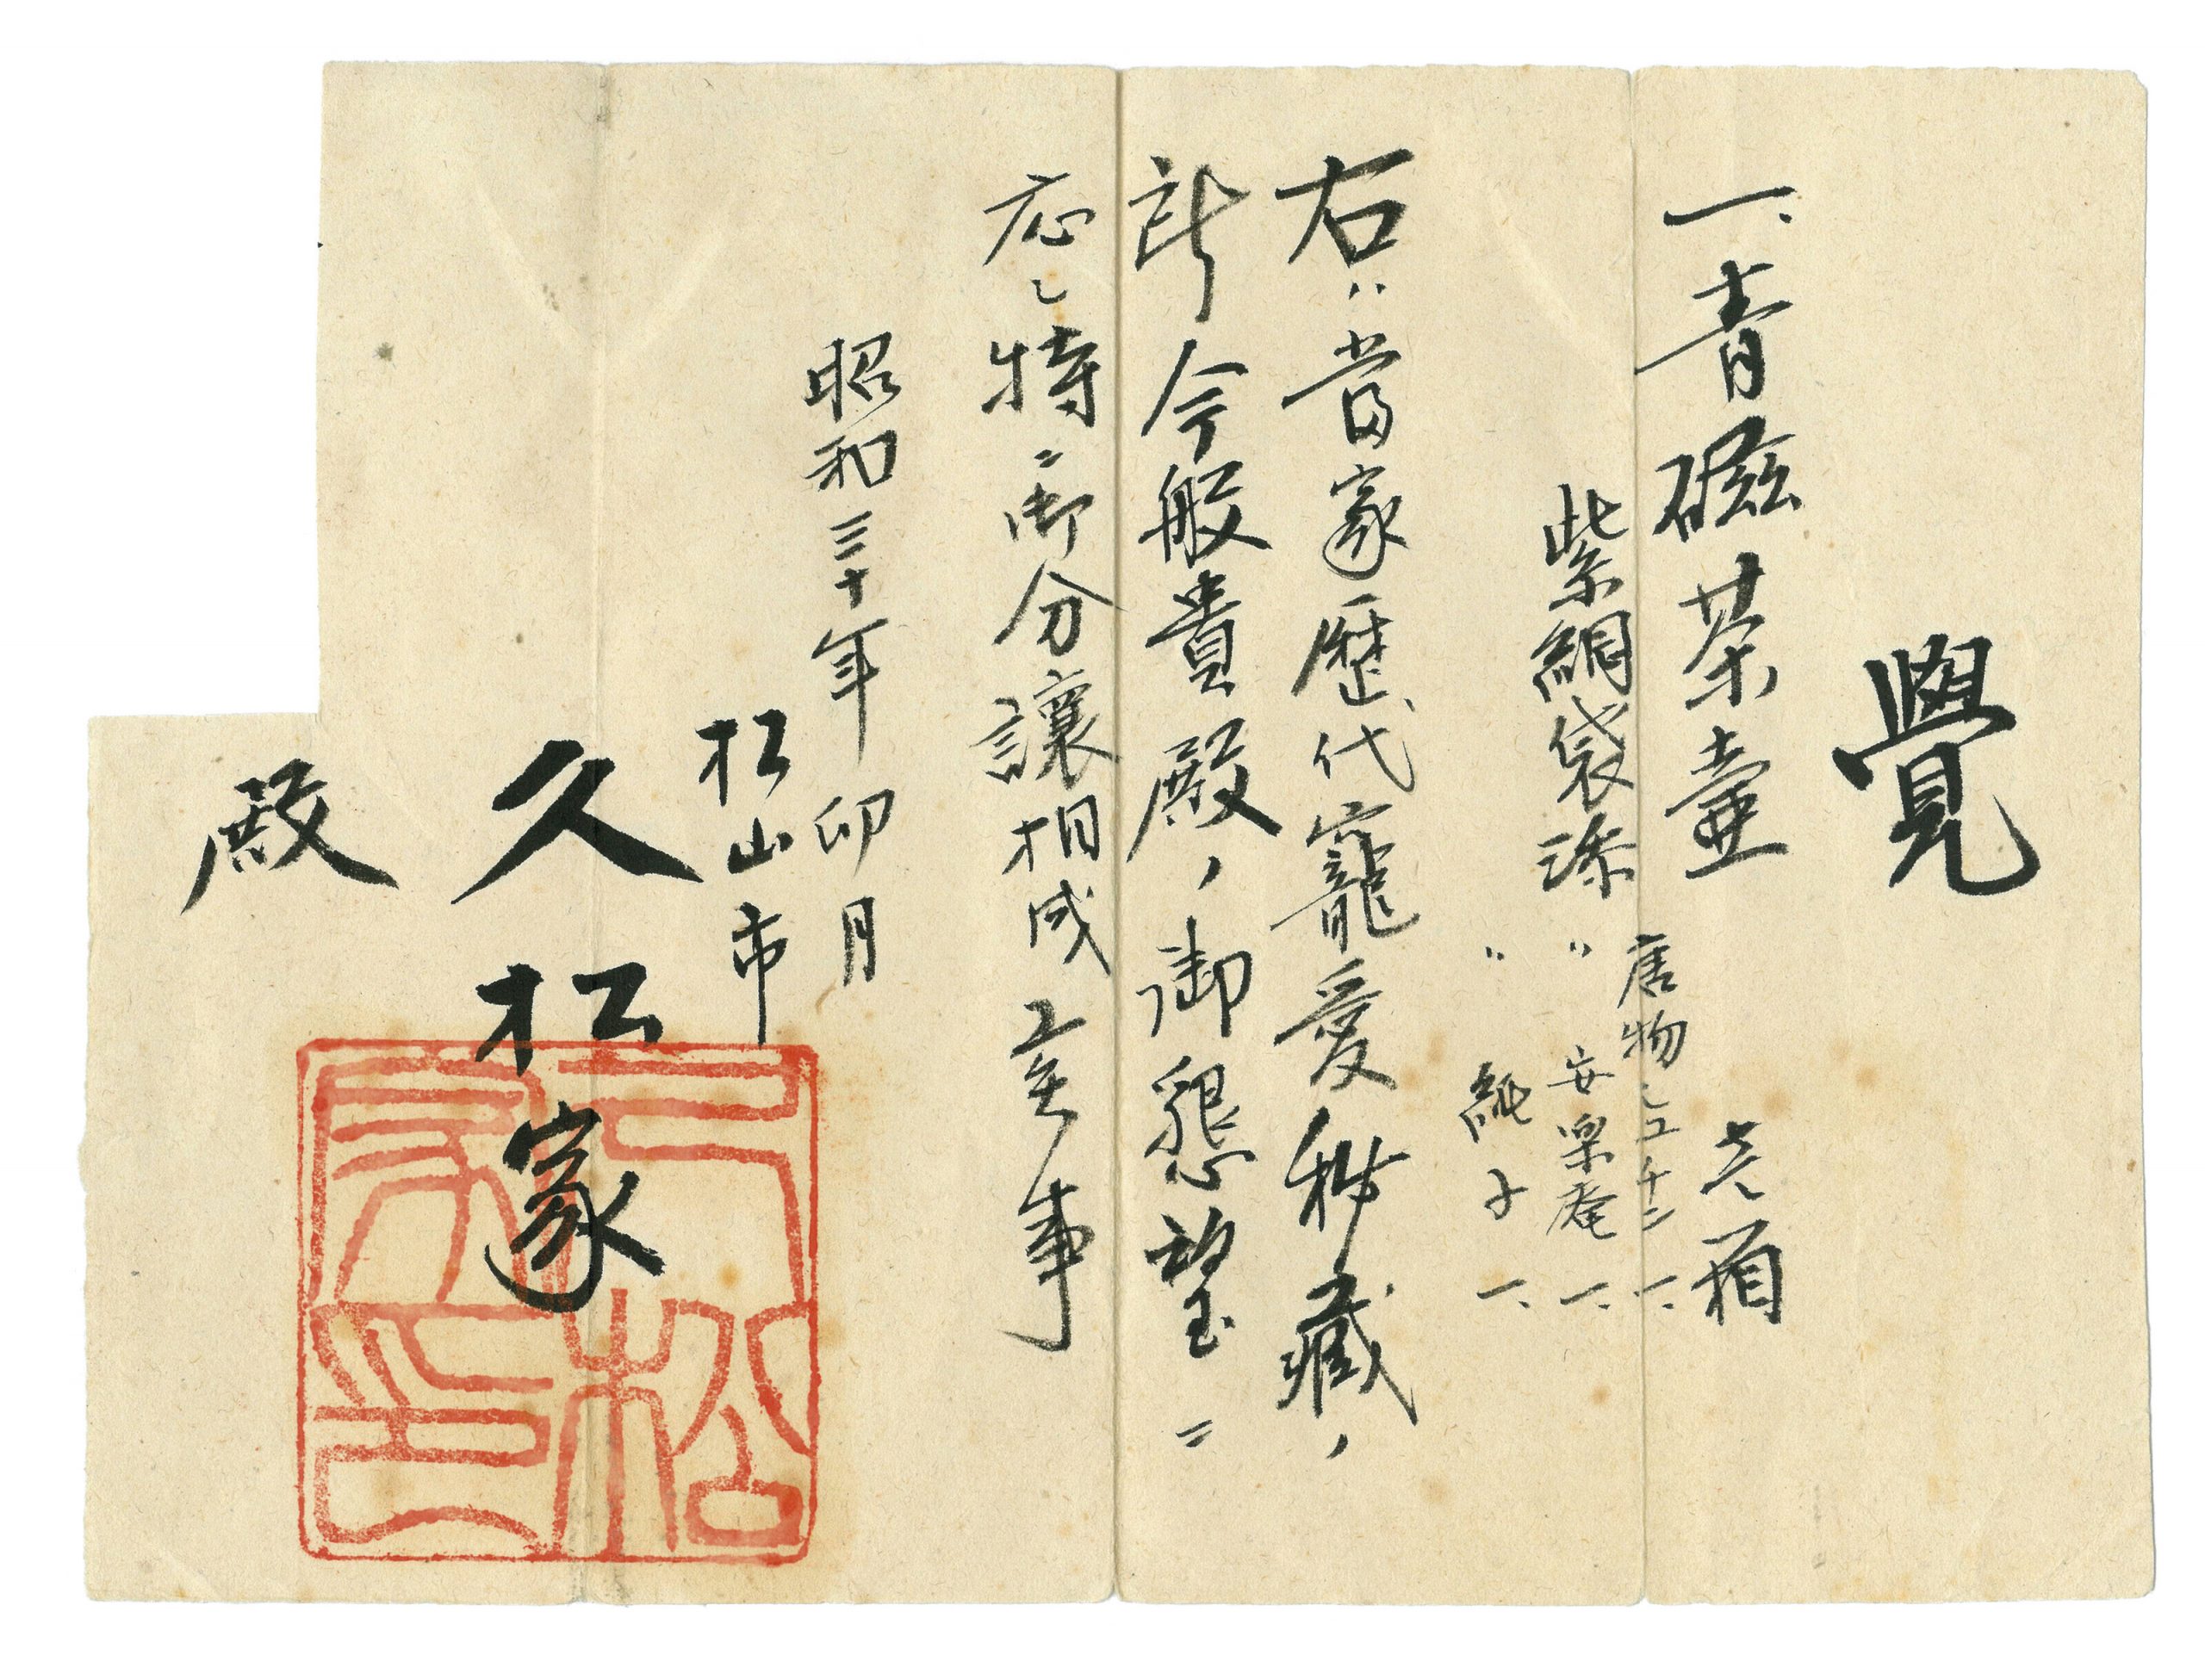 覺
一、青磁茶壷 壱箱
紫絹袋添 唐物シユチン 一、
〃 安楽庵 一、
〃 純子 一、
右ハ當家歴代寵愛秘藏ノ
所今般貴殿ノ御懇望ニ
応シ特ニ御分讓相成 事
昭和三十年卯月
松山市
久松家
久松家印
殿